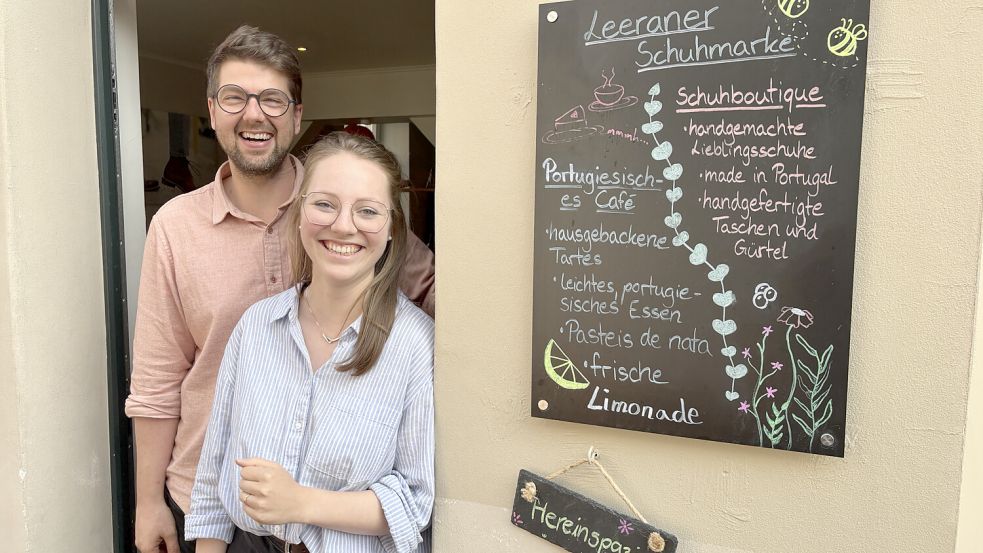 Leeraner
Schuhmarke
mmmh...
Portugiesisch-
es Café
·hausgebackene
Tartes
·leichtes, portugie-
sisches Essen
·Pasteis de nata
·frische
Limonade
Schuhboutique
·handgemachte
Lieblingsschuhe
·made in Portugal
·handgefertigte
Taschen und
Gürtel
Hereinspazi